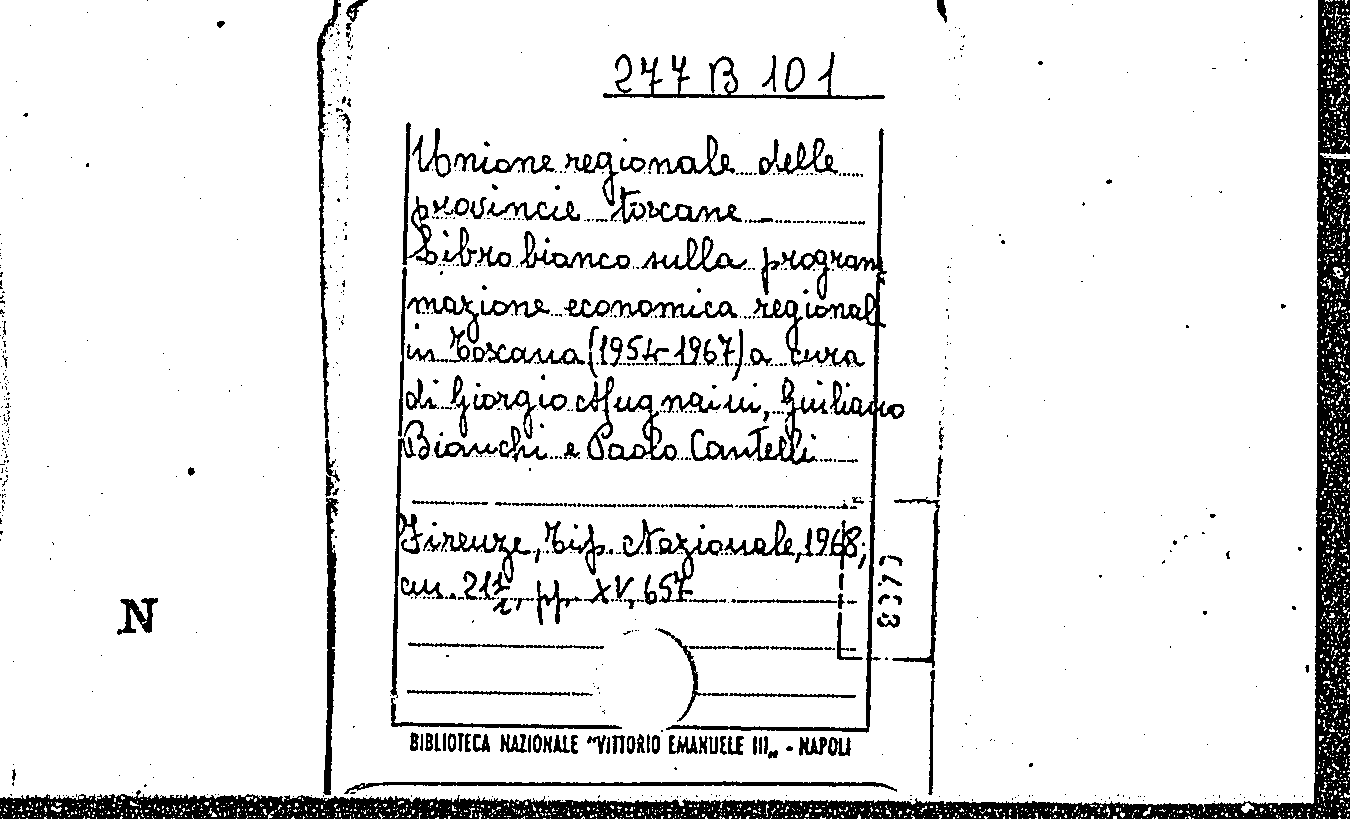 277 B 101
Unione regionale delle
provincie toscane -
Libro bianco sulla program
mazione economica regionale
in Toscana (1954-1967) a cura
di Giorgio Mugnaini, Giuliano
Bianchi e Paolo Cantelli
Firenze, Tip. Nazionale, 1968;
cm. 21½, pp. XV, 657
N
BIBLIOTECA NAZIONALE "VITTORIO EMANUELE III„ - NAPOLI